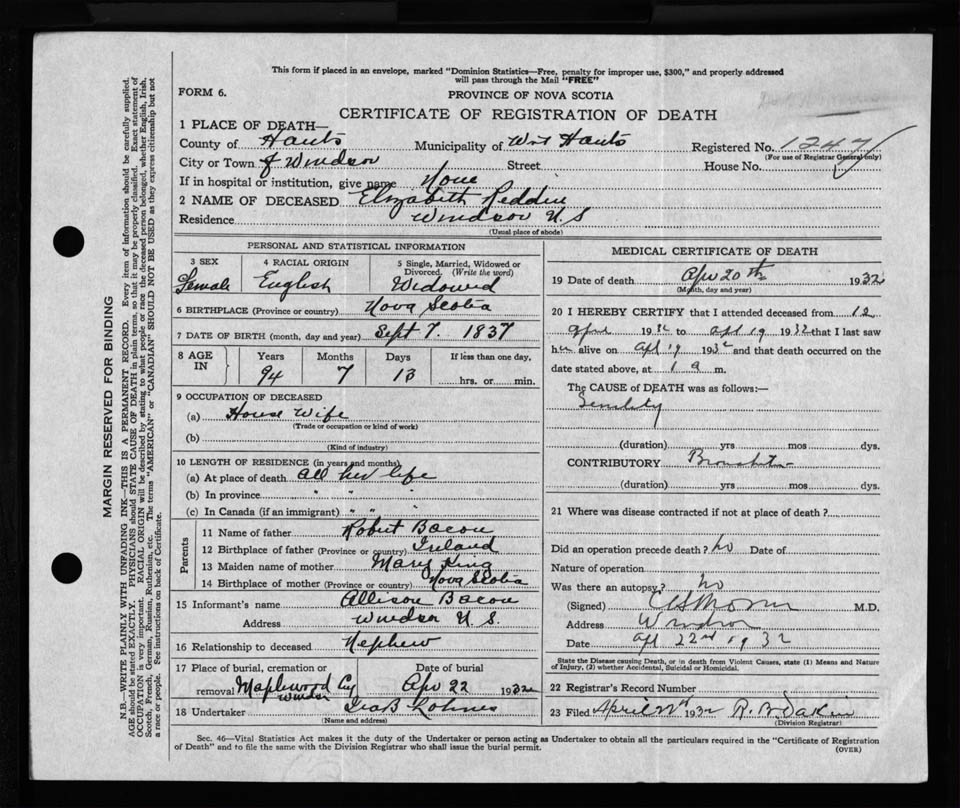 This form if placed in an envelope, marked "Dominion Statistics—Free, penalty for improper use, $300," and properly addressed
will pass through the Mail "FREE"
FORM 6.
PROVINCE OF NOVA SCOTIA
CERTIFICATE OF REGISTRATION OF DEATH
1 PLACE OF DEATH—
County of Hants Municipality of West Hants Registered No. 1247
(For use of Registrar General only)
City or Town of Windsor Street House No.
If in hospital or institution, give name None
2 NAME OF DECEASED Elizabeth Reddin
Residence Windsor N.S
(Usual place of abode)
PERSONAL AND STATISTICAL INFORMATION
3 SEX
Female
4 RACIAL ORIGIN
English
5 Single, Married, Widowed or
Divorced. (Write the word)
Widowed
6 BIRTHPLACE (Province or country) Nova Scotia
7 DATE OF BIRTH (month, day and year) Sept 7. 1837
8 AGE IN
Years Months Days If less than one day,
94 7 13 hrs. or min.
9 OCCUPATION OF DECEASED
(a) House Wife
(Trade or occupation or kind of work)
(b)
(Kind of industry)
10 LENGTH OF RESIDENCE (in years and months)
(a) At place of death all her life
(b) In province " " "
(c) In Canada (if an immigrant) " " "
Parents
11 Name of father Robert Bacon
12 Birthplace of father (Province or country) Ireland
13 Maiden name of mother Mary King
14 Birthplace of mother (Province or country) Nova Scotia
15 Informant's name Allison Bacon
Address Windsor N.S.
16 Relationship to deceased Nephew
17 Place of burial, cremation or Date of burial
removal Maplewood Cy Windsor Apr 22 1932
18 Undertaker
(Name and address)
MEDICAL CERTIFICATE OF DEATH
19 Date of death Apr 20th 1932
(Month, day and year)
20 I HEREBY CERTIFY that I attended deceased from 12
Apr 1932 to Apl 19 1932 that I last saw
her alive on Apl 19 1932 and that death occurred on the
date stated above, at 1 a m.
The CAUSE of DEATH was as follows:—
Senility
(duration) yrs mos dys.
CONTRIBUTORY Bronchitis
(duration) yrs mos dys.
21 Where was disease contracted if not at place of death?
Did an operation precede death? no Date of
Nature of operation
Was there an autopsy? no
(Signed) M.D.
Address Windsor
Date Apl 22nd 1932
State the Disease causing Death, or in death from Violent Causes, state (1) Means and Nature
of Injury, (2) whether Accidental, Suicidal or Homicidal.
22 Registrar's Record Number
23 Filed April 22nd 1932 R. B. Dakin
(Division Registrar)
Sec. 46—Vital Statistics Act makes it the duty of the Undertaker or person acting as Undertaker to obtain all the particulars required in the "Certificate of Registration
of Death" and to file the same with the Division Registrar who shall issue the burial permit.
(OVER)
MARGIN RESERVED FOR BINDING
N.B.—WRITE PLAINLY, WITH UNFADING INK—THIS IS A PERMANENT RECORD. Every item of information should be carefully supplied.
AGE should be stated EXACTLY. PHYSICIANS should STATE CAUSE OF DEATH in plain terms, so that it may be properly classified. Exact statement of
OCCUPATION is very important. RACIAL ORIGIN will be described by stating to what people or race the deceased person belonged, whether English, Irish,
Scotch, French, German, Russian, Ruthenian, etc. The terms "AMERICAN" or "CANADIAN" SHOULD NOT BE USED as they express citizenship but not
a race or people. See instructions on back of Certificate.